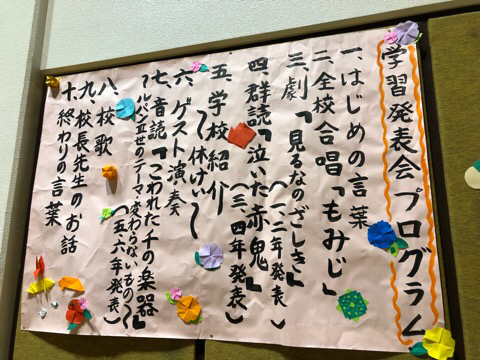 学習発表会プログラム
一、はじめの言葉
二、全校合唱「もみじ」
三、劇「見るなのざしき」
(一、二年発表)
四、群読「泣いた赤鬼」
(三、四年発表)
五、学校紹介
〜休けい〜
六、ゲスト演奏
七、音読「こわれた千の楽器」
〜ルパン三世のテーマ変わらないもの〜
(五、六年発表)
八、校歌
九、校長先生のお話
十、終わりの言葉